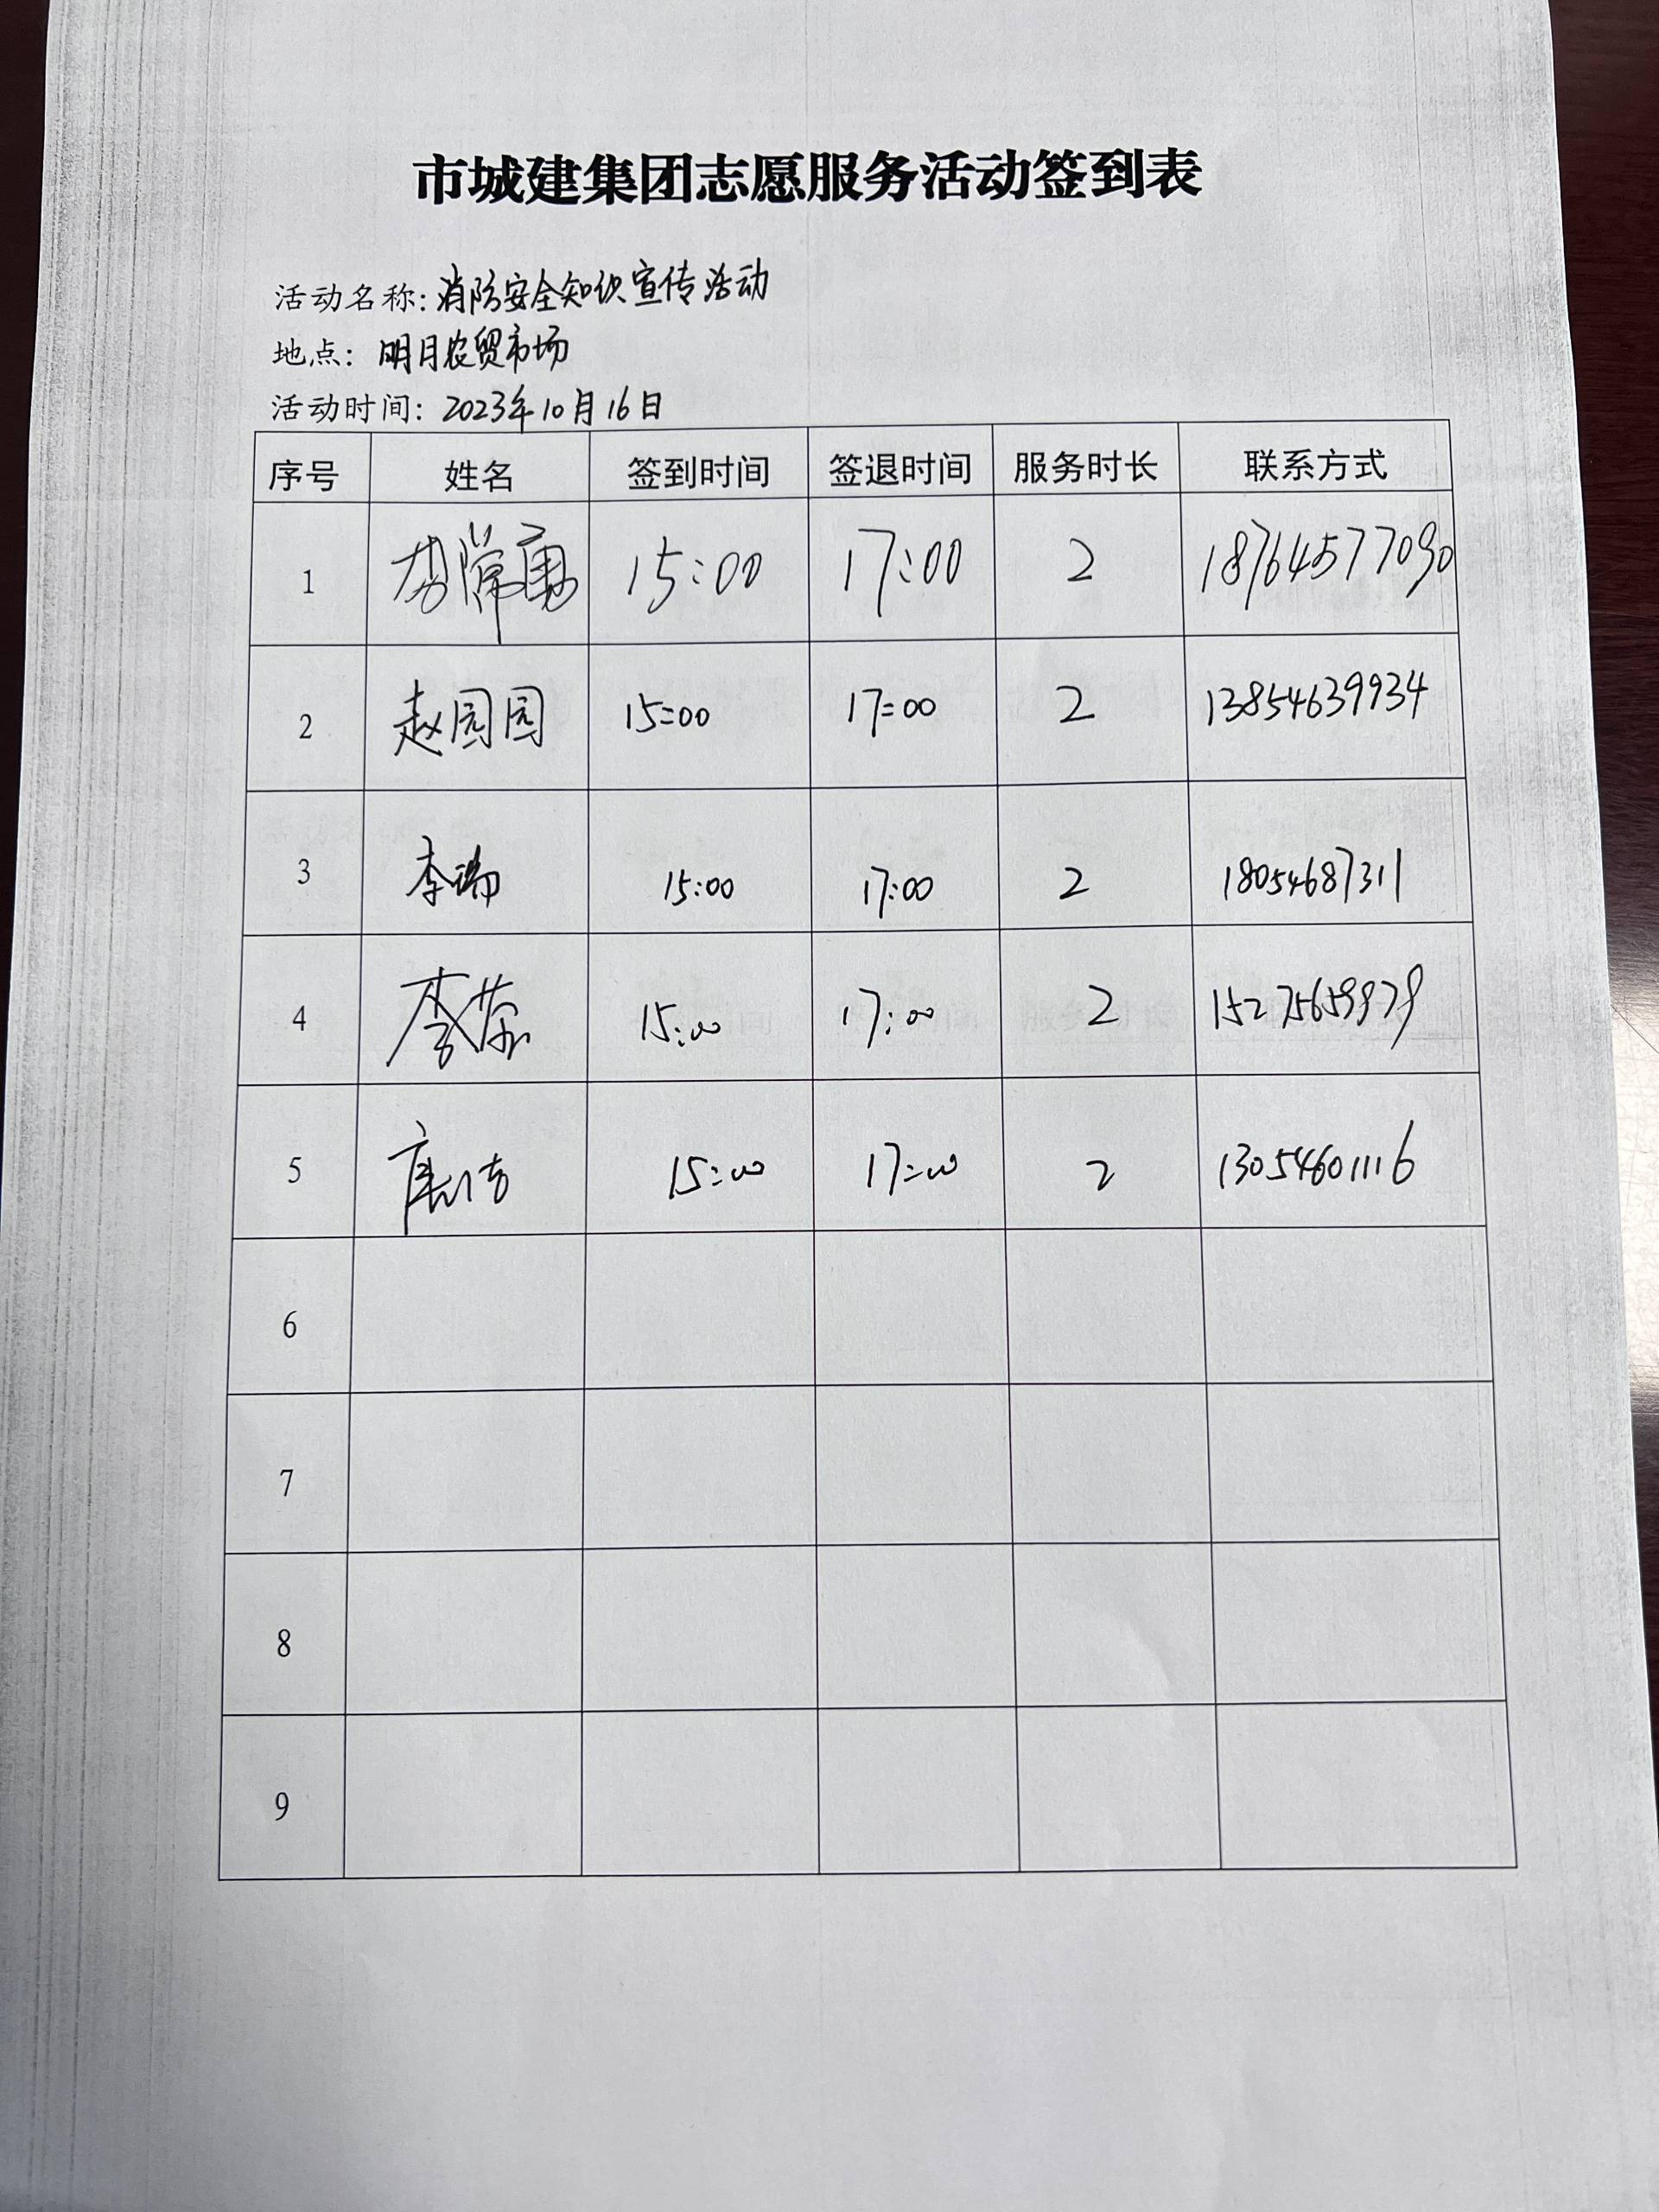 市城建集团志愿服务活动签到表
活动名称: 消防安全知识宣传活动
地点: 明月农贸市场
活动时间: 2023年10月16日
序号 姓名 签到时间 签退时间 服务时长 联系方式
1 15:00 17:00 2 18764577090
2 赵园园 15:00 17:00 2 13854639934
3 李瑞 15:00 17:00 2 18054687311
4 李荣 15:00 17:00 2 15275659979
5 15:00 17:00 2 13054601116
6
7
8
9